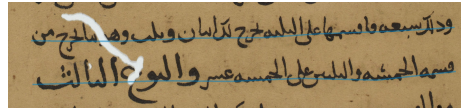 وذلك سبعه فاقسمها على الثلثه يخرج لك اثنان وثلث وهذا ما يخرج من
قسمه الخمسه والثلثين على الخمسه عشر والنوع الثالث